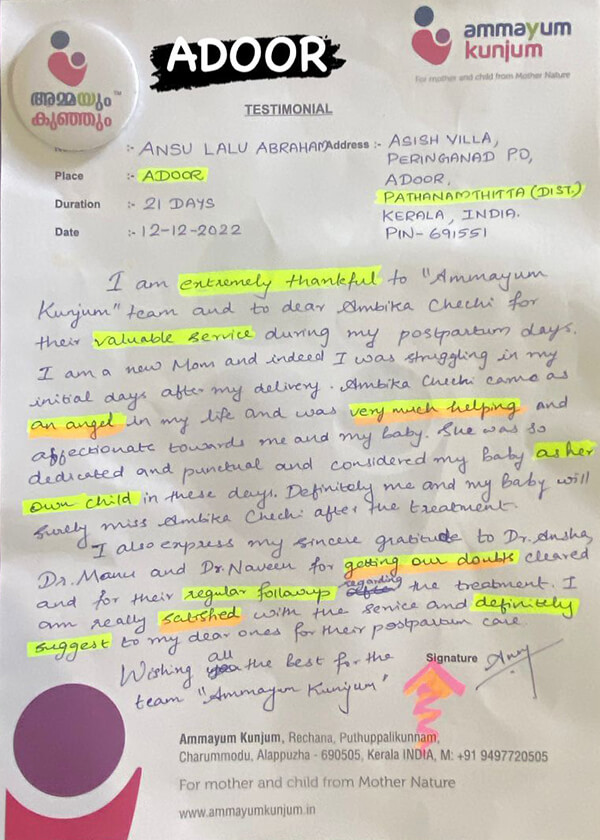 ADOOR
അമ്മയും
കുഞ്ഞും
TM
ammayum
kunjum
For mother and child from Mother Nature
TESTIMONIAL
:- ANSU LALU ABRAHAM
Address :- ASISH VILLA,
PERINGANAD PO,
ADOOR,
PATHANAMTHITTA (DIST.)
KERALA, INDIA.
PIN- 691551
Place :- ADOOR
Duration :- 21 DAYS
Date :- 12-12-2022
I am extremely thankful to "Ammayum
Kunjum" team and to dear Ambika Chechi for
their valuable service during my postpartum days.
I am a new Mom and indeed I was struggling in my
initial days after my delivery. Ambika Chechi came as
an angel in my life and was very much helping and
affectionate towards me and my baby. She was so
dedicated and punctual and considered my baby as her
own child in these days. Definitely me and my Baby will
surely miss Ambika Chechi after the treatment.
I also express my sincere gratitude to Dr. Ansha,
Dr. Manu and Dr. Naveen for getting our doubts cleared
and for their regular followup regarding the treatment. I
am really satisfied with the service and definitely
suggest to my dear ones for their postpartum care
Wishing all the best for the
team "Ammayum Kunjum"
Signature
Ammayum Kunjum, Rechana, Puthuppalikunnam,
Charummodu, Alappuzha - 690505, Kerala INDIA, M: +91 9497720505
For mother and child from Mother Nature
www.ammayumkunjum.in